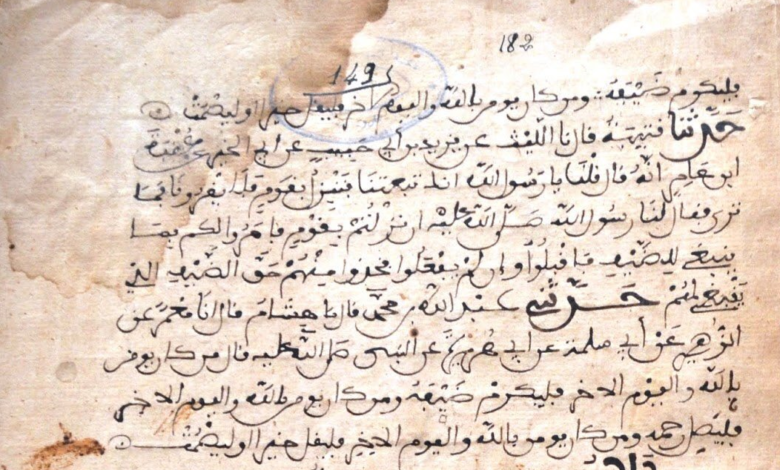 182
149
فليكرم ضيفه ومن كان يومن بالله واليوم الاخر فليقل خيرا او ليصمت
حدثنا قتيبة قال نا الليث عن يزيد بن أبي حبيب عن أبي الخير عن عقبة
ابن عامر انه قال قلنا يا رسول الله انك تبعثنا فننزل بقوم فلا يقروننا فما
ترى فقال لنا رسول الله صلى الله عليه ان نزلتم بقوم فامروا لكم بما
ينبغي للضيف فاقبلوا وإن لم يفعلوا فخذوا منهم حق الضيف الذي
ينبغي لهم حدثني عبد الله بن محمد قال نا هشام قال انا معمر عن
الزهري عن أبي سلمة عن أبي هريرة عن النبي صلى الله عليه قال من كان يومن
بالله واليوم الاخر فليكرم ضيفه ومن كان يومن بالله واليوم الاخر
فليصل رحمه ومن كان يومن بالله واليوم الاخر فليقل خيرا او ليصمت